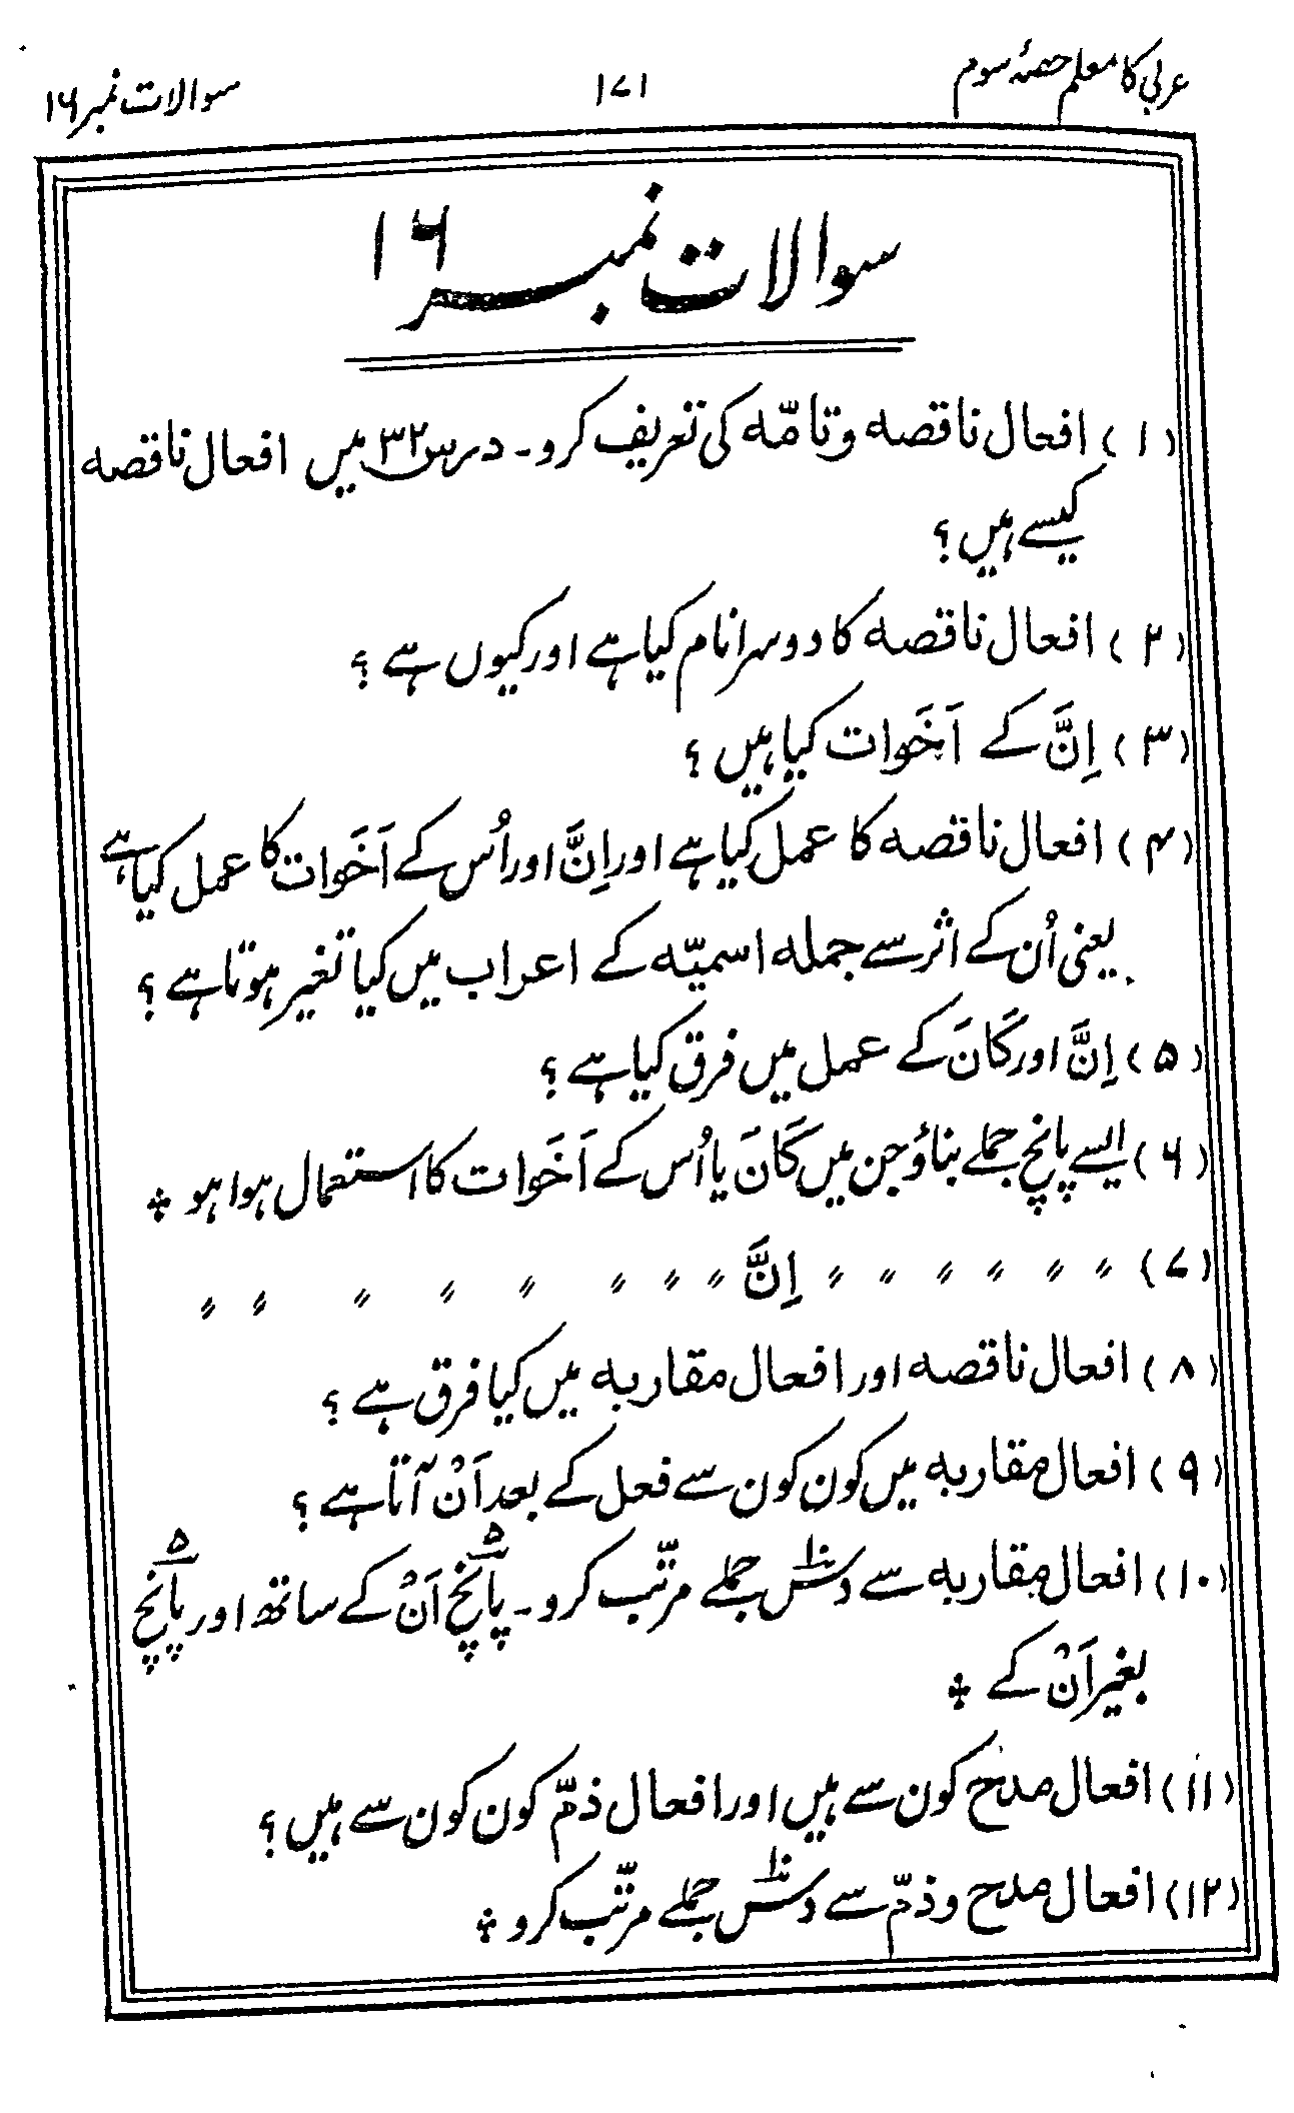 عربی کا معلم حصۂ سوم ۱۷۱ سوالات نمبر ۱۶
سوالات نمبر ۱۶
(۱) افعال ناقصہ و تامّہ کی تعریف کرو۔ درس ۳۲ میں افعال ناقصہ
کیسے ہیں؟
(۲) افعال ناقصہ کا دوسرا نام کیا ہے اور کیوں ہے؟
(۳) اِنَّ کے اَخَوات کیا ہیں؟
(۴) افعال ناقصہ کا عمل کیا ہے اور اِنَّ اور اُس کے اَخَوات کا عمل کیا ہے
یعنی اُن کے اثر سے جملہ اسمیّہ کے اعراب میں کیا تغیر ہوتا ہے؟
(۵) اِنَّ اور کَانَ کے عمل میں فرق کیا ہے؟
(۶) ایسے پانچ جملے بناؤ جن میں کَانَ یا اُس کے اَخَوات کا استعمال ہوا ہو ٭
(۷) 〃 〃 〃 〃 〃 〃 اِنَّ 〃 〃 〃 〃 〃 〃 〃 〃
(۸) افعال ناقصہ اور افعال مقاربہ میں کیا فرق ہے؟
(۹) افعال مقاربہ میں کون کون سے فعل کے بعد اَنْ آتا ہے؟
(۱۰) افعال مقاربہ سے دس۱۰ جملے مرتّب کرو۔ پانچ۵ اَنْ کے ساتھ اور پانچ۵
بغیر اَنْ کے ٭
(۱۱) افعال مدح کون سے ہیں اور افعال ذمّ کون کون سے ہیں؟
(۱۲) افعال مدح و ذمّ سے دس۱۰ جملے مرتّب کرو ٭